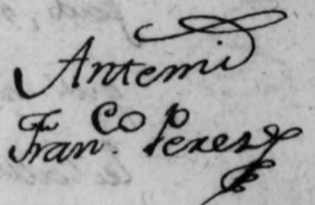 Antemi
Fran.co Perez